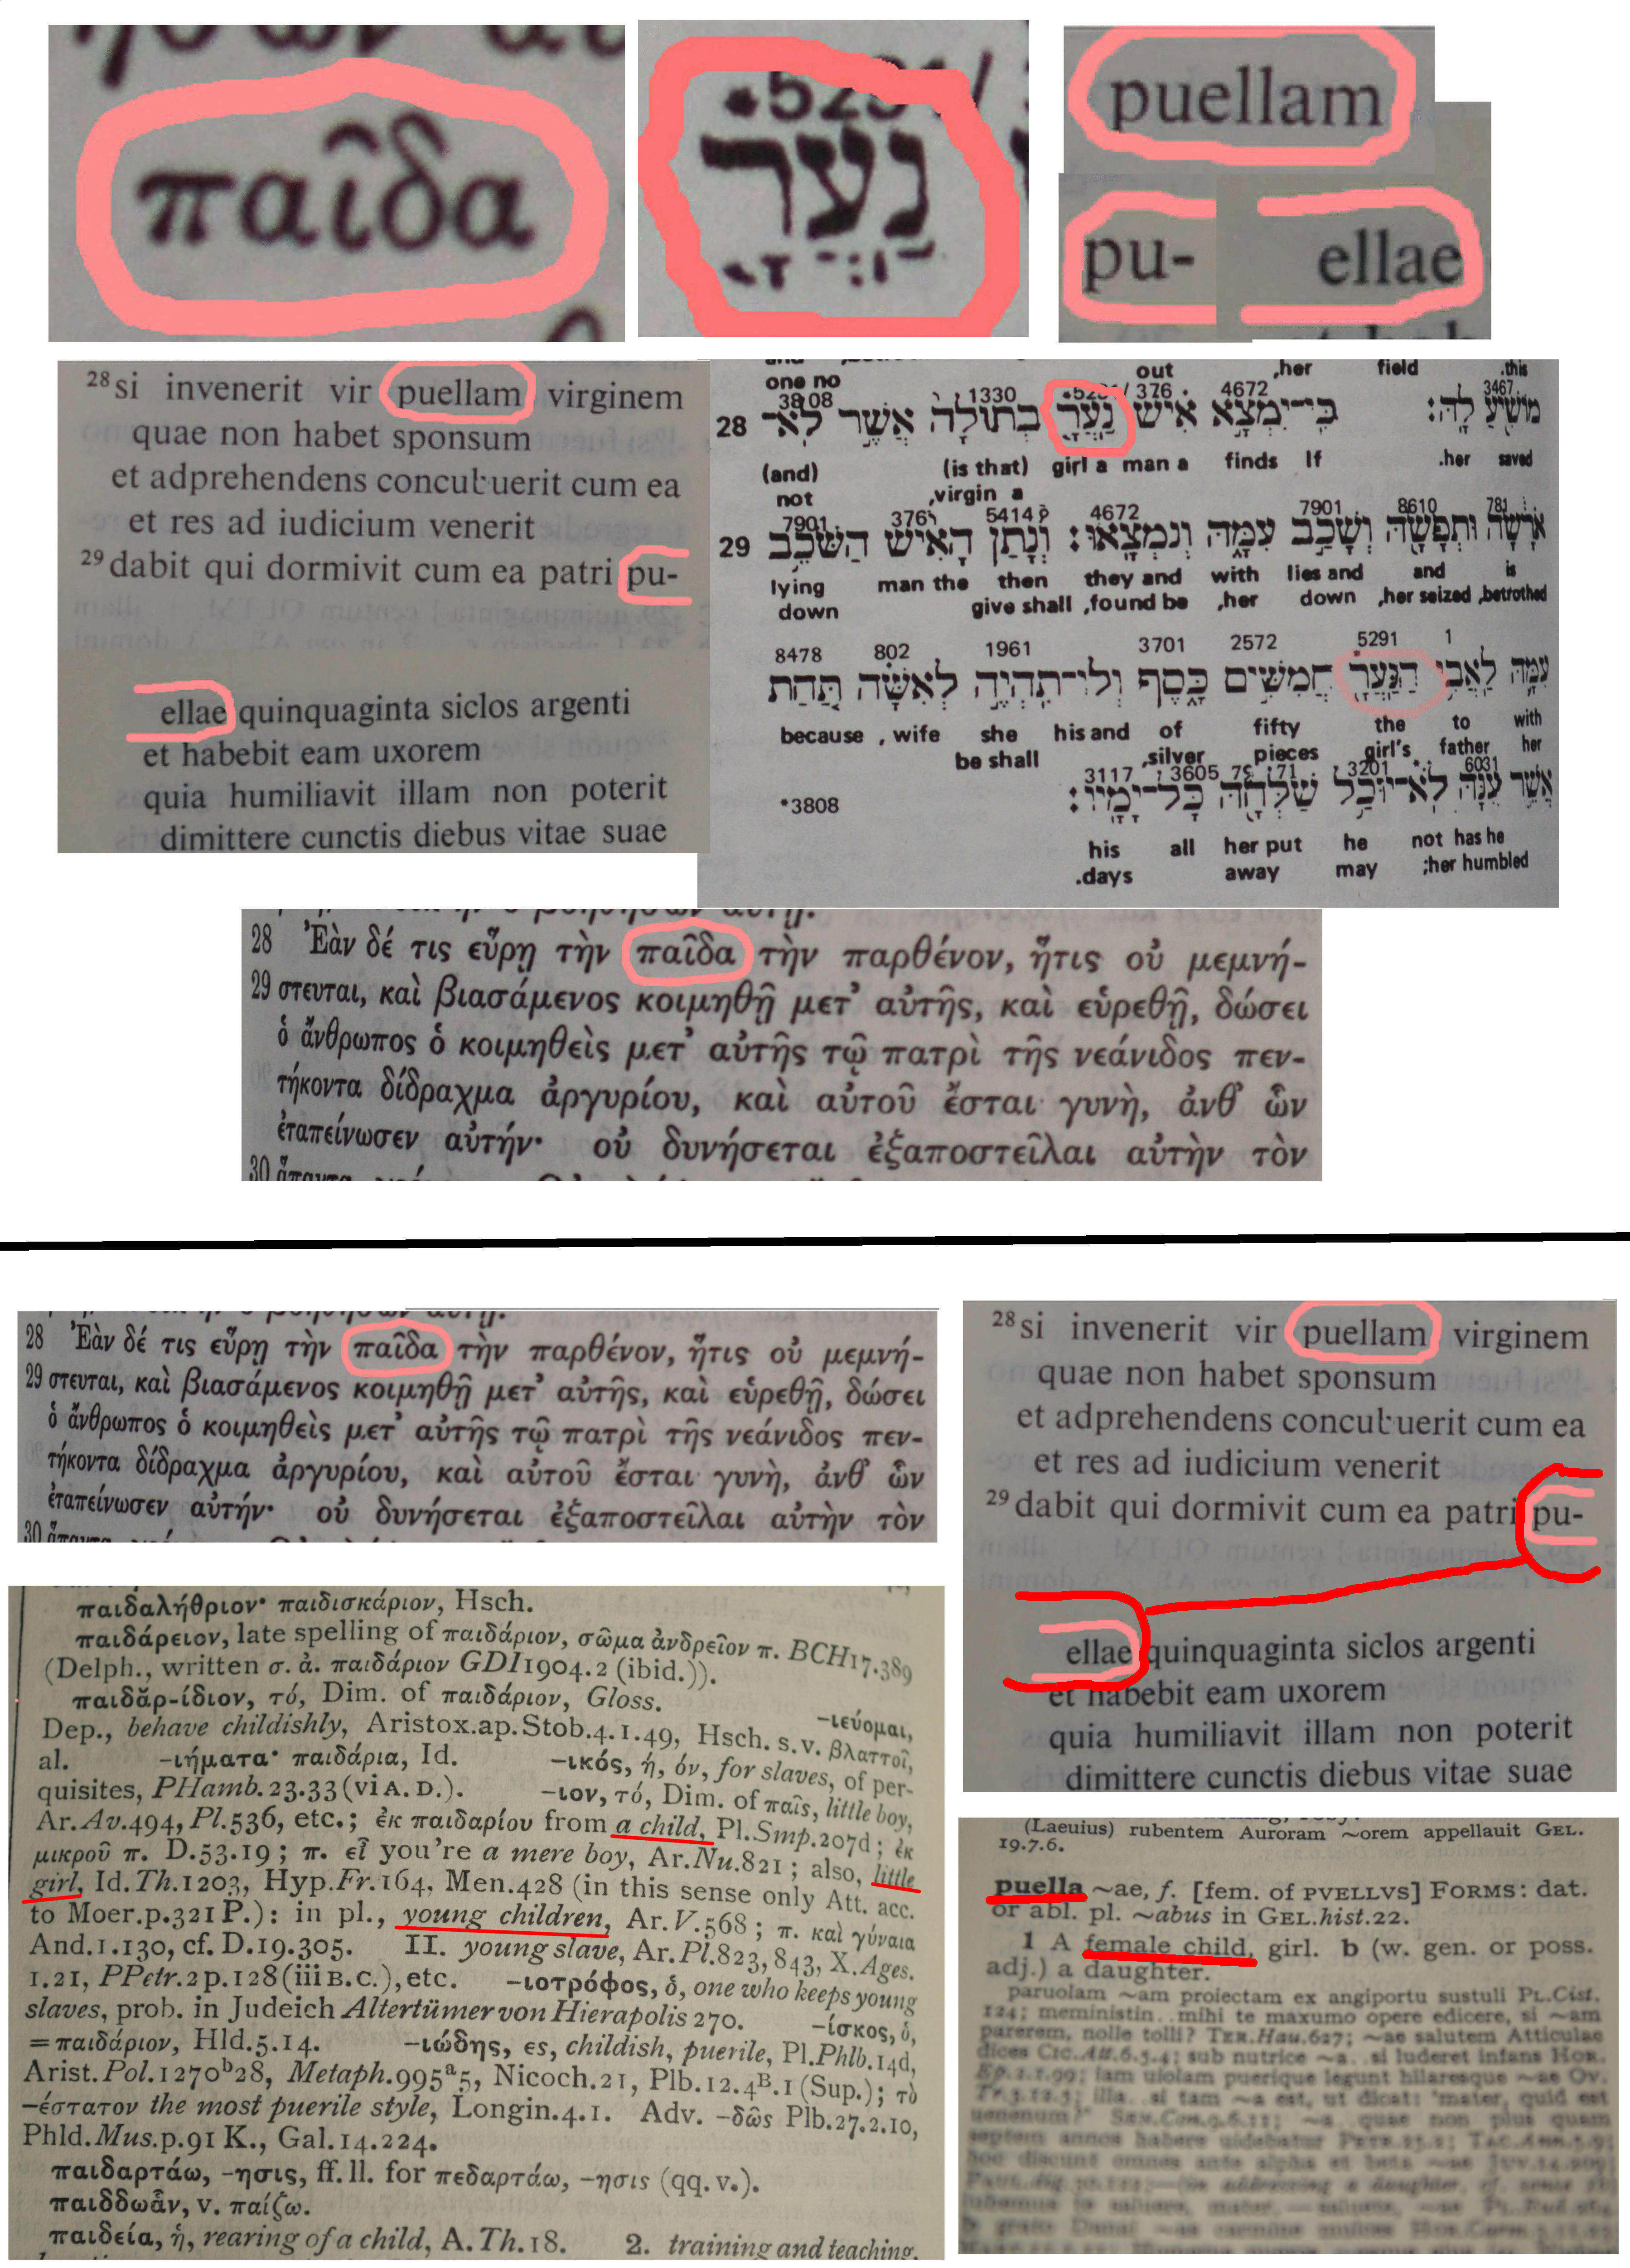 παῖδα
נַעֲרָ
puellam
pu- ellae
²⁸si invenerit vir puellam virginem
quae non habet sponsum
et adprehendens concubuerit cum ea
et res ad iudicium venerit
²⁹dabit qui dormivit cum ea patri pu-
ellae quinquaginta siclos argenti
et habebit eam uxorem
quia humiliavit illam non poterit
dimittere cunctis diebus vitae suae
out ,her field .this
one no
3808 1330 376 4672 3467
28 מוֹשִׁיעַ לָהּ: כִּי־יִמְצָא אִישׁ נַעֲרָ בְתוּלָה אֲשֶׁר לֹא־
(and) (is that) girl a man a finds If .her saved
not ,virgin a
7901 376 5414 4672 7901 8610 781
29 אֹרָשָׂה וּתְפָשָׂהּ וְשָׁכַב עִמָּהּ וְנִמְצָאוּ: וְנָתַן הָאִישׁ הַשֹּׁכֵב
lying man the then they and with lies and and is
down give shall ,found be ,her down ,her seized ,betrothed
8478 802 1961 3701 2572 5291 1
עִמָּהּ לַאֲבִי הַנַּעֲרָ חֲמִשִּׁים כָּסֶף וְלוֹ־תִהְיֶה לְאִשָּׁה תַּחַת
because , wife she his and of fifty the to with
be shall ,silver pieces girl's father her
3117 3605 7971 3201 6031
*3808 אֲשֶׁר עִנָּהּ לֹא־יוּכַל שַׁלְּחָהּ כָּל־יָמָיו:
his all her put he not has he
.days away may ;her humbled
28 Ἐὰν δέ τις εὕρῃ τὴν παῖδα τὴν παρθένον, ἥτις οὐ μεμνή-
29 στευται, καὶ βιασάμενος κοιμηθῇ μετ᾽ αὐτῆς, καὶ εὑρεθῇ, δώσει
ὁ ἄνθρωπος ὁ κοιμηθεὶς μετ᾽ αὐτῆς τῷ πατρὶ τῆς νεάνιδος πεν-
τήκοντα δίδραχμα ἀργυρίου, καὶ αὐτοῦ ἔσται γυνὴ, ἀνθ᾽ ὧν
ἐταπείνωσεν αὐτήν· οὐ δυνήσεται ἐξαποστεῖλαι αὐτὴν τὸν
30
28 Ἐὰν δέ τις εὕρῃ τὴν παῖδα τὴν παρθένον, ἥτις οὐ μεμνή-
29 στευται, καὶ βιασάμενος κοιμηθῇ μετ᾽ αὐτῆς, καὶ εὑρεθῇ, δώσει
ὁ ἄνθρωπος ὁ κοιμηθεὶς μετ᾽ αὐτῆς τῷ πατρὶ τῆς νεάνιδος πεν-
τήκοντα δίδραχμα ἀργυρίου, καὶ αὐτοῦ ἔσται γυνὴ, ἀνθ᾽ ὧν
ἐταπείνωσεν αὐτήν· οὐ δυνήσεται ἐξαποστεῖλαι αὐτὴν τὸν
30
παιδαλήθριον· παιδισκάριον, Hsch.
παιδάρειον, late spelling of παιδάριον, σῶμα ἀνδρεῖον π. BCH17.389
(Delph., written σ. ἀ. παιδάριον GDI1904.2 (ibid.)).
παιδᾰρ-ίδιον, τό, Dim. of παιδάριον, Gloss. -ιεύομαι,
Dep., behave childishly, Aristox.ap.Stob.4.1.49, Hsch. s.v. βλαττοῖ,
al. -ιήματα· παιδάρια, Id. -ικός, ή, όν, for slaves, of per-
quisites, PHamb.23.33 (vi A. D.). -ιον, τό, Dim. of παῖς, little boy,
Ar.Av.494, Pl.536, etc.; ἐκ παιδαρίου from a child, Pl.Smp.207d; ἐκ
μικροῦ π. D.53.19; π. εἶ you're a mere boy, Ar.Nu.821; also, little
girl, Id.Th.1203, Hyp.Fr.164, Men.428 (in this sense only Att. acc.
to Moer.p.321 P.): in pl., young children, Ar.V.568; π. καὶ γύναια
And.1.130, cf. D.19.305. II. young slave, Ar.Pl.823, 843, X.Ages.
1.21, PPetr.2p.128 (iii B.C.), etc. -ιοτρόφος, ὁ, one who keeps young
slaves, prob. in Judeich Altertümer von Hierapolis 270. -ίσκος, ὁ,
= παιδάριον, Hld.5.14. -ιώδης, ες, childish, puerile, Pl.Phlb.14d,
Arist.Pol.1270ᵇ28, Metaph.995ᵃ5, Nicoch.21, Plb.12.4ᴮ.1 (Sup.); τὸ
-έστατον the most puerile style, Longin.4.1. Adv. -δῶς Plb.27.2.10,
Phld.Mus.p.91 K., Gal.14.224.
παιδαρτάω, -ησις, ff. ll. for πεδαρτάω, -ησις (qq. v.).
παιδδωἅν, v. παίζω.
παιδεία, ἡ, rearing of a child, A.Th.18. 2. training and teaching,
²⁸si invenerit vir puellam virginem
quae non habet sponsum
et adprehendens concubuerit cum ea
et res ad iudicium venerit
²⁹dabit qui dormivit cum ea patri pu-
ellae quinquaginta siclos argenti
et habebit eam uxorem
quia humiliavit illam non poterit
dimittere cunctis diebus vitae suae
(Laeuius) rubentem Auroram ~orem appellauit GEL.
19.7.6.
puella ~ae, f. [fem. of PVELLVS] FORMS: dat.
or abl. pl. ~abus in GEL.hist.22.
1 A female child, girl. b (w. gen. or poss.
adj.) a daughter.
paruolam ~am proiectam ex angiportu sustuli PL.Cist.
124; meministin.. mihi te maxumo opere edicere, si ~am
parerem, nolle tolli? TER.Hau.627; ~ae salutem Atticulae
dices CIC.Att.6.5.4; sub nutrice ~a.. si luderet infans HOR.